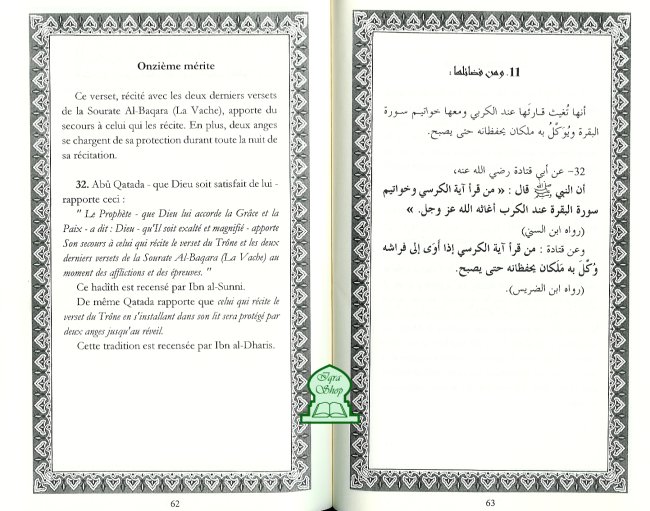 Onzième mérite
Ce verset, récité avec les deux derniers versets
de la Sourate Al-Baqara (La Vache), apporte du
secours à celui qui les récite. En plus, deux anges
se chargent de sa protection durant toute la nuit de
sa récitation.
32. Abû Qatada - que Dieu soit satisfait de lui -
rapporte ceci :
" Le Prophète - que Dieu lui accorde la Grâce et la
Paix - a dit : Dieu - qu'Il soit exalté et magnifié - apporte
Son secours à celui qui récite le verset du Trône et les deux
derniers versets de la Sourate Al-Baqara (La Vache) au
moment des afflictions et des épreuves. "
Ce hadîth est recensé par Ibn al-Sunni.
De même Qatada rapporte que celui qui récite le
verset du Trône en s'installant dans son lit sera protégé par
deux anges jusqu'au réveil.
Cette tradition est recensée par Ibn al-Dharis.
62
11. ومن فضائلها :
أنها تُغيث قـارئَها عند الكربي ومعها خواتيم سـورة
البقرة ويُوَكَّلُ به ملكان يحفظانه حتى يصبح.
32- عن أبي قتادة رضي الله عنه،
أن النبي ﷺ قال : « من قرأ آية الكرسي وخواتيم
سورة البقرة عند الكرب أغاثه الله عز وجل. »
(رواه ابن السني)
وعن قتادة : من قرأ آية الكرسي إذا أوَى إلى فراشه
وُكِّلَ به مَلَكان يحفظانه حتى يصبح.
(رواه ابن الضريس)
63
Iqra
Shop